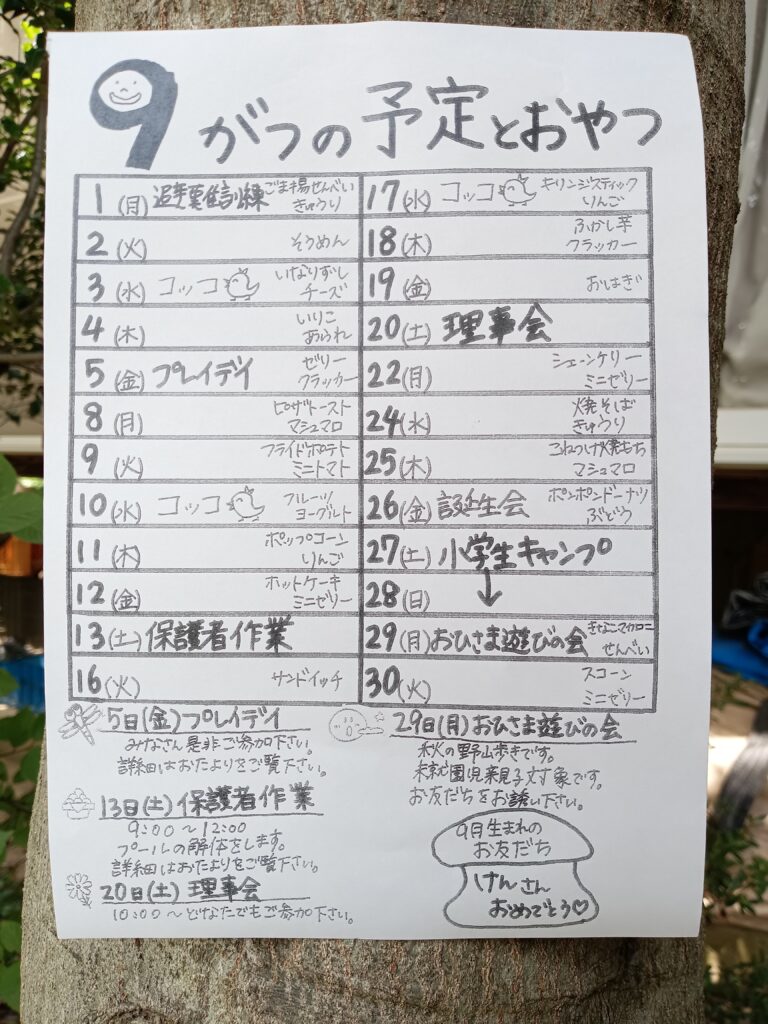 9がつの予定とおやつ
1(月) 避難訓練 ごま揚せんべい
きゅうり
2(火) そうめん
3(水) コッコ いなりずし
チーズ
4(木) いりこ
あられ
5(金) プレイデイ ゼリー
クラッカー
8(月) ピザトースト
マシュマロ
9(火) フライドポテト
ミニトマト
10(水) コッコ フルーツ
ヨーグルト
11(木) ポップコーン
りんご
12(金) ホットケーキ
ミニゼリー
13(土) 保護者作業
16(火) サンドイッチ
17(水) コッコ キリンジスティック
りんご
18(木) ふかし芋
クラッカー
19(金) おはぎ
20(土) 理事会
22(月) シェーンケリー
ミニゼリー
24(水) 焼そば
きゅうり
25(木) 焼もち
マシュマロ
26(金) 誕生会 ポンポンドーナツ
ぶどう
27(土) 小学生キャンプ
28(日) ↓
29(月) おひさま遊びの会 きなこマカロニ
せんべい
30(火) スコーン
ミニゼリー
5日(金)プレイデイ
みなさん是非ご参加下さい。
詳細はおたよりをご覧下さい。
13日(土)保護者作業
9:00〜12:00
プールの解体をします。
詳細はおたよりをご覧下さい。
20日(土) 理事会
10:00〜どなたでもご参加下さい。
29日(月)おひさま遊びの会
秋の野山歩きです。
未就園児親子対象です。
お友だちをお誘い下さい。
9月生まれの
お友だち
けんさん
おめでとう♡